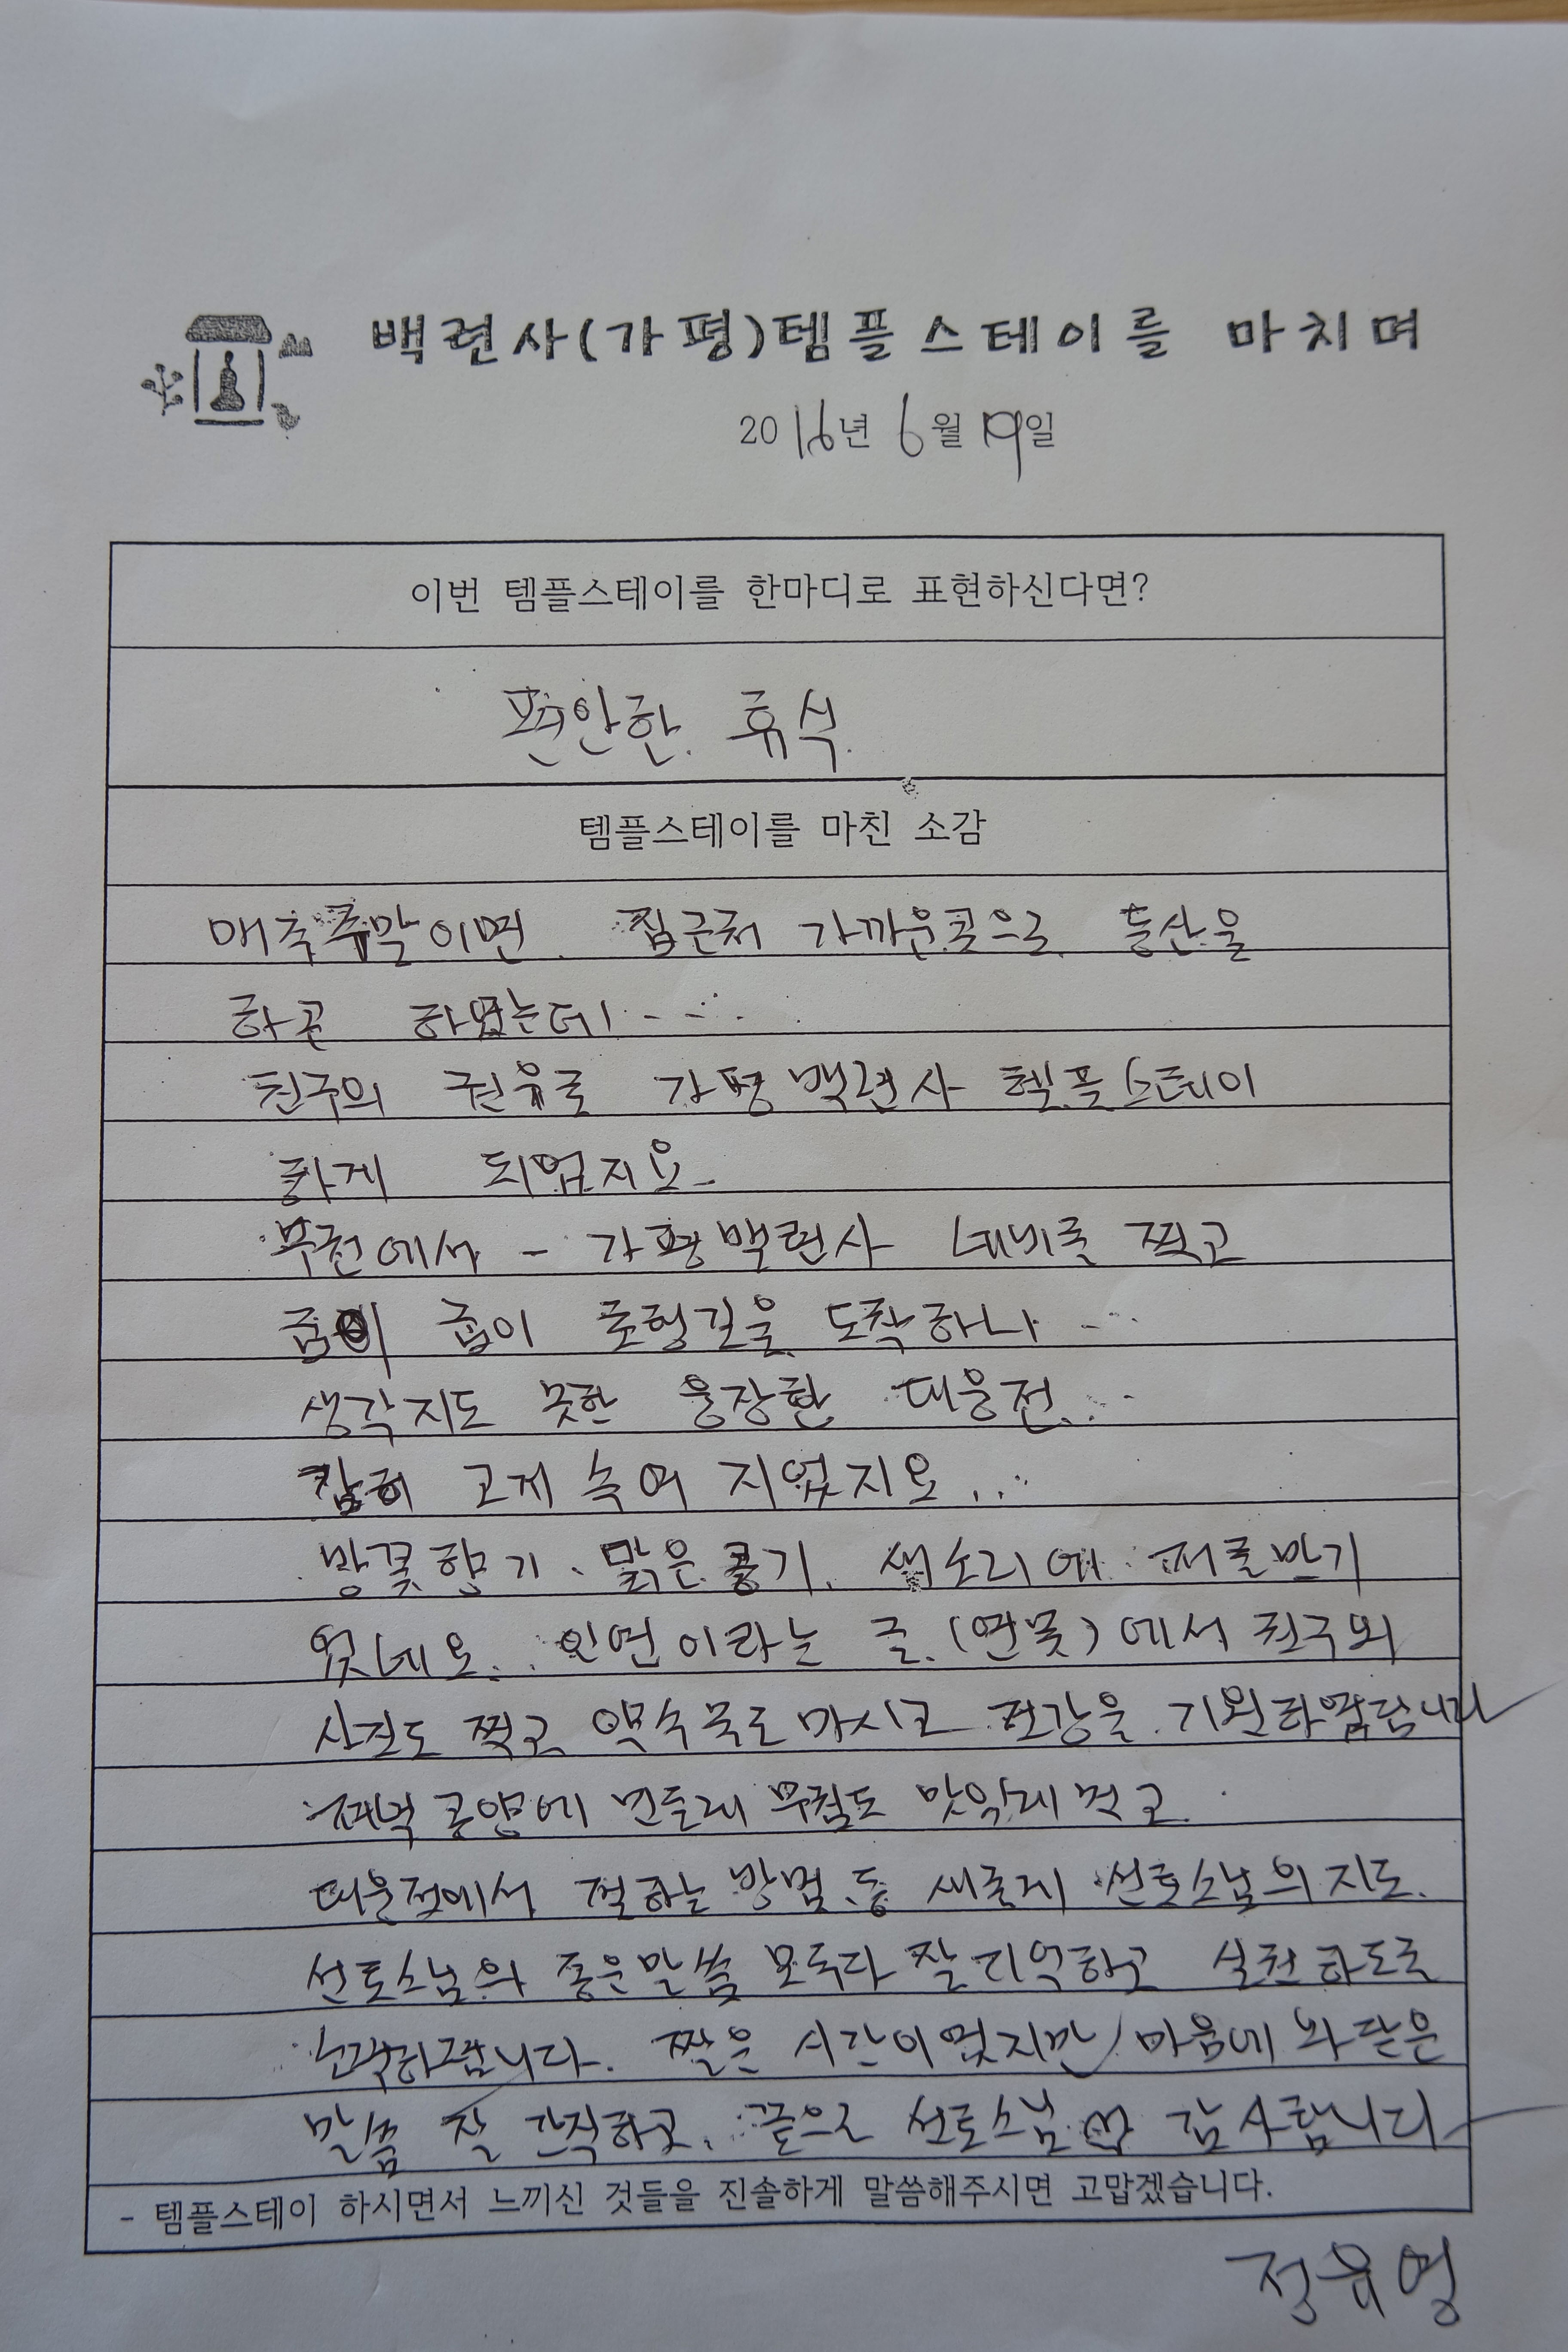 백련사(가평)템플스테이를 마치며
2016년 6월 19일
이번 템플스테이를 한마디로 표현하신다면?
편안한 휴식
템플스테이를 마친 소감
매주 주말이면 집근처 가까운곳으로 등산을
하곤 하였는데! ....
친구의 권유로 가평백련사 템플스테이
하게 되었지요
부천에서 - 가평백련사 네비로 찍고
굽이 굽이 로행길을 도착하니 ...
생각지도 못한 웅장한 대웅전...
참히 고개 숙여 지었지요...
밤꽃향기. 맑은 공기. 새소리에 퍼를반기
었네요... 인연이라는 글.(연못)에서 친구와
사진도 찍고 약수물도 마시고 건강을 기원하였답니다
저녁공양에 민들레 무침도 맛있게 먹고.
대웅전에서 절하는 방법.등 새롭게 선효스님의 지도.
선효스님의 좋은말씀 모두다 잘 기억하고 실천하도록
노력하렵니다. 짧은 시간이었지만 마음에 와닫은
말씀 잘 간직하고. 끝으로 선효스님 감사합니다
- 템플스테이 하시면서 느끼신 것들을 진솔하게 말씀해주시면 고맙겠습니다.
정유영